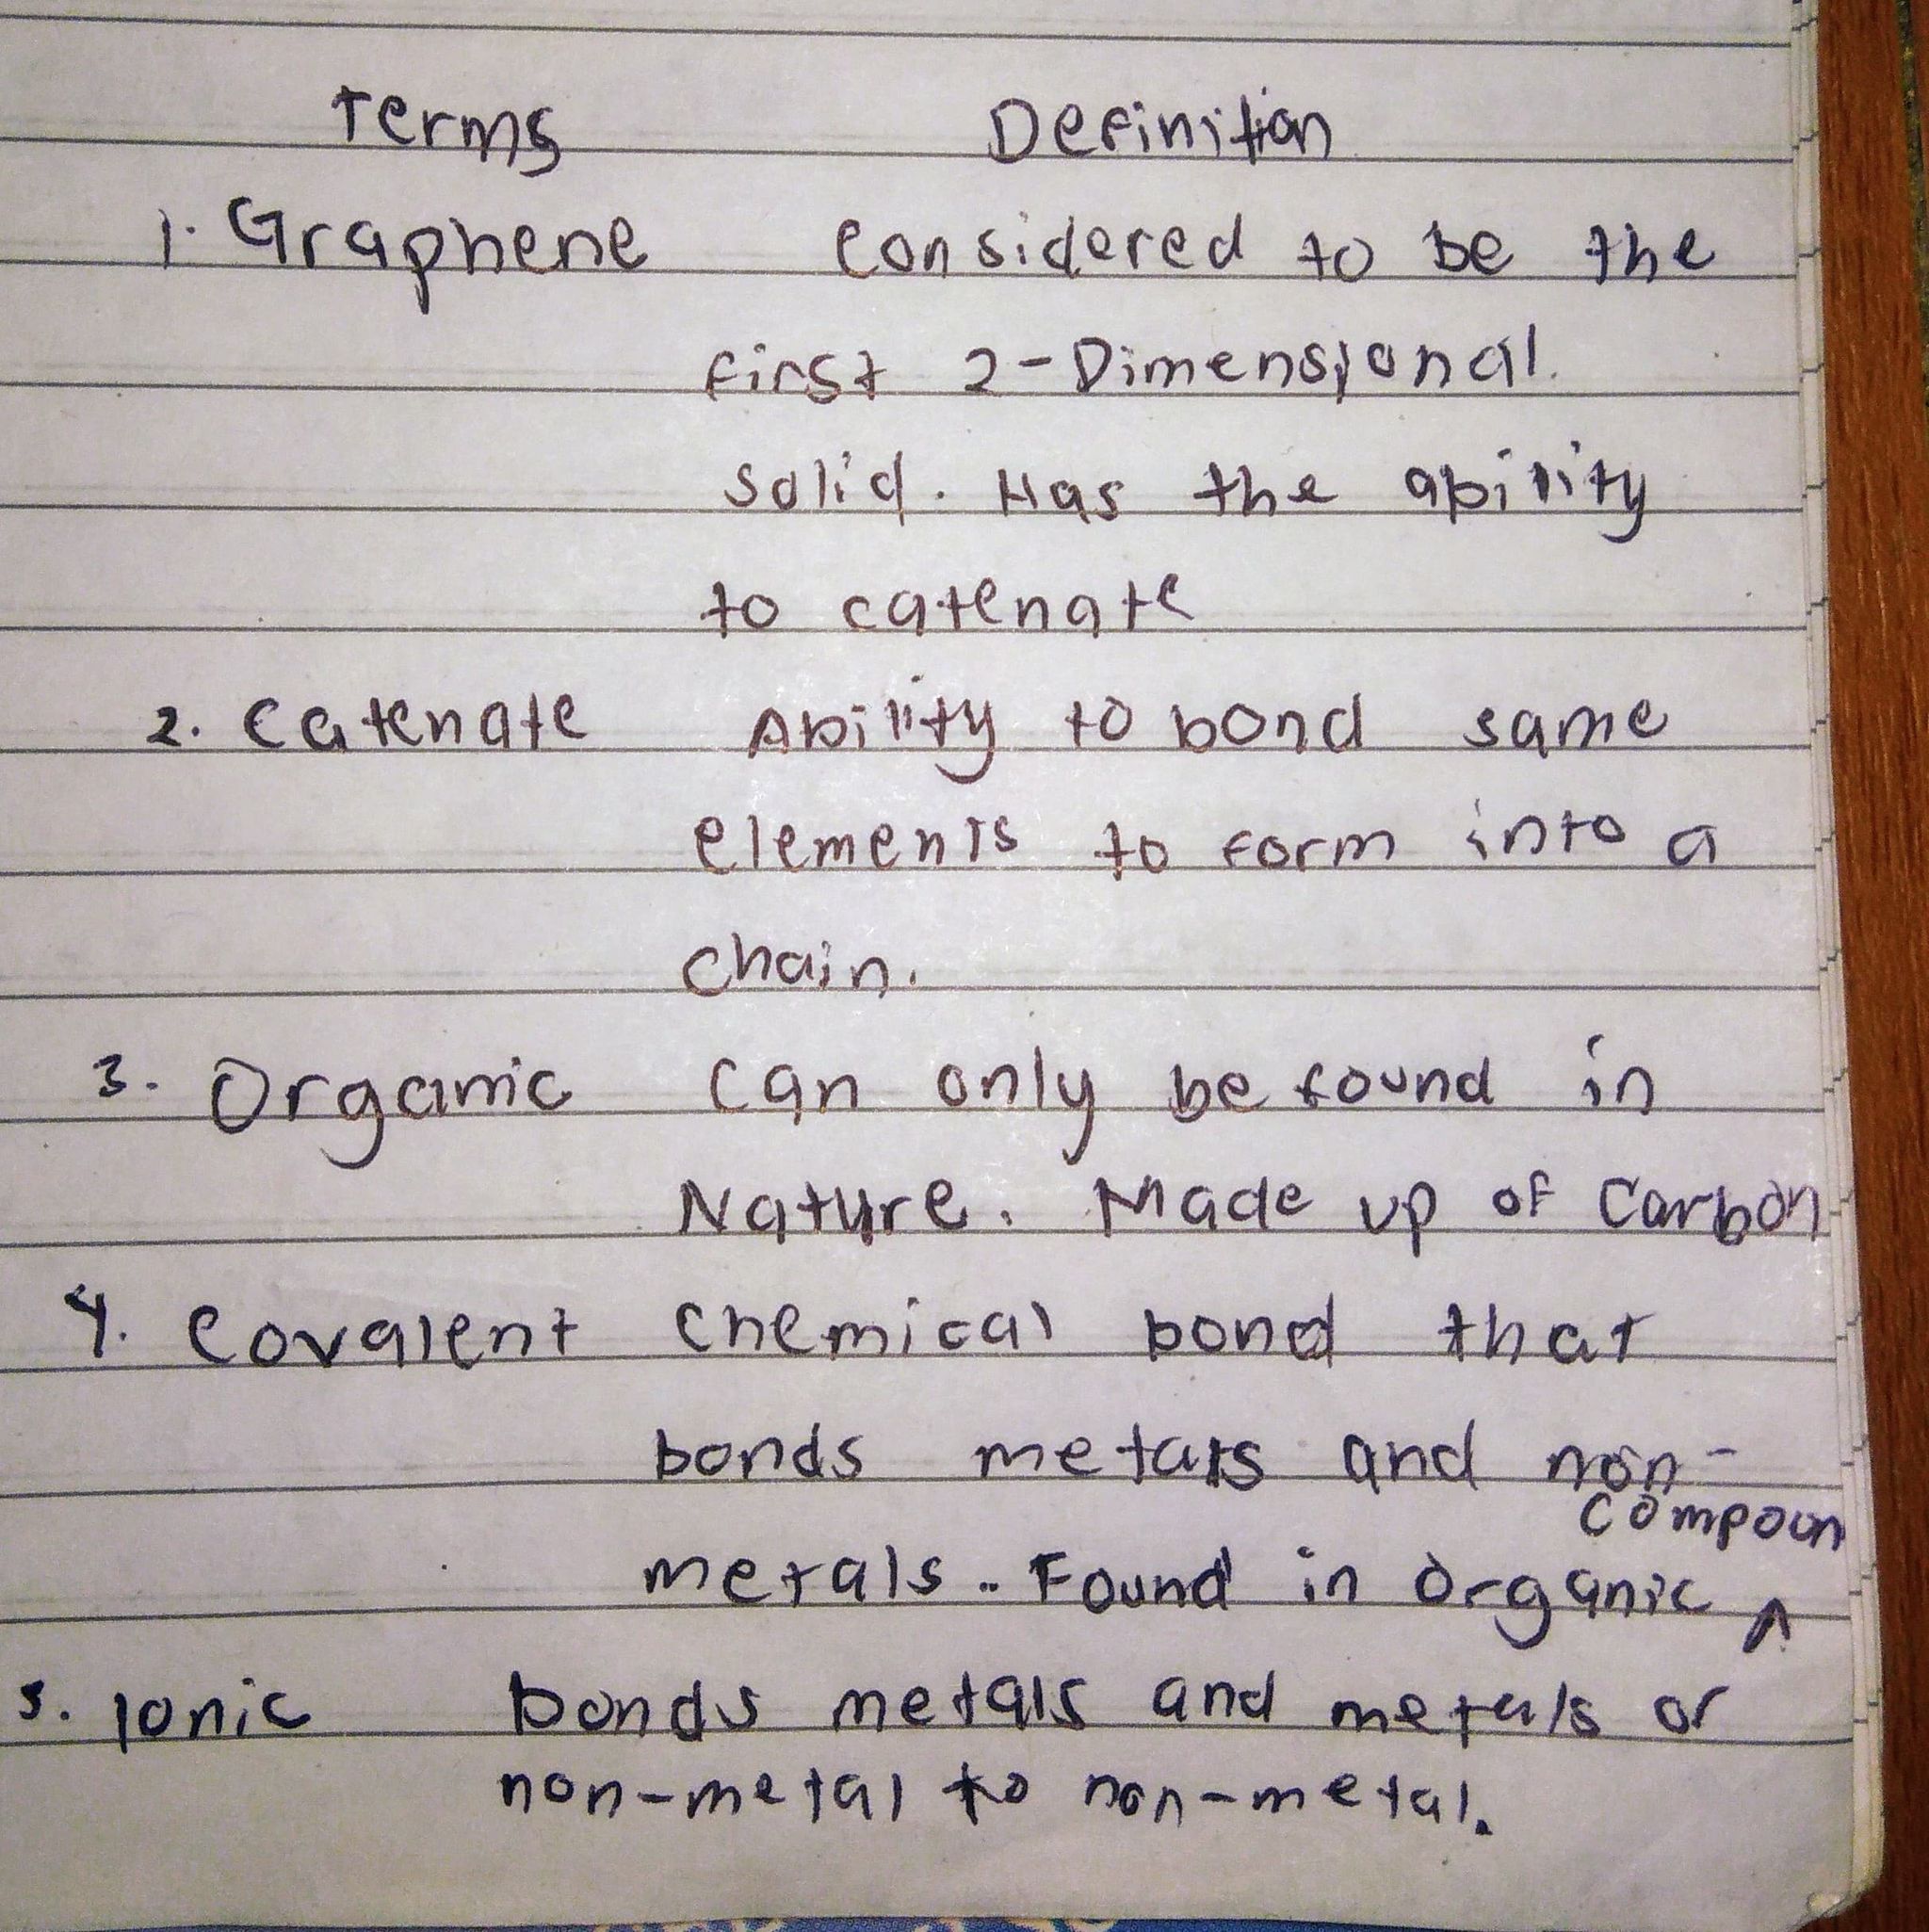 Terms Definition
1. Graphene Considered to be the
first 2-Dimensional
solid. Has the ability
to catenate
2. Catenate Ability to bond same
elements to form into a
chain.
3. Organic Can only be found in
Nature. Made up of Carbon
4. Covalent Chemical bond that
bonds metals and non-
compoun
metals.. Found in Organic ^
5. Ionic bonds metals and metals or
non-metal to non-metal.